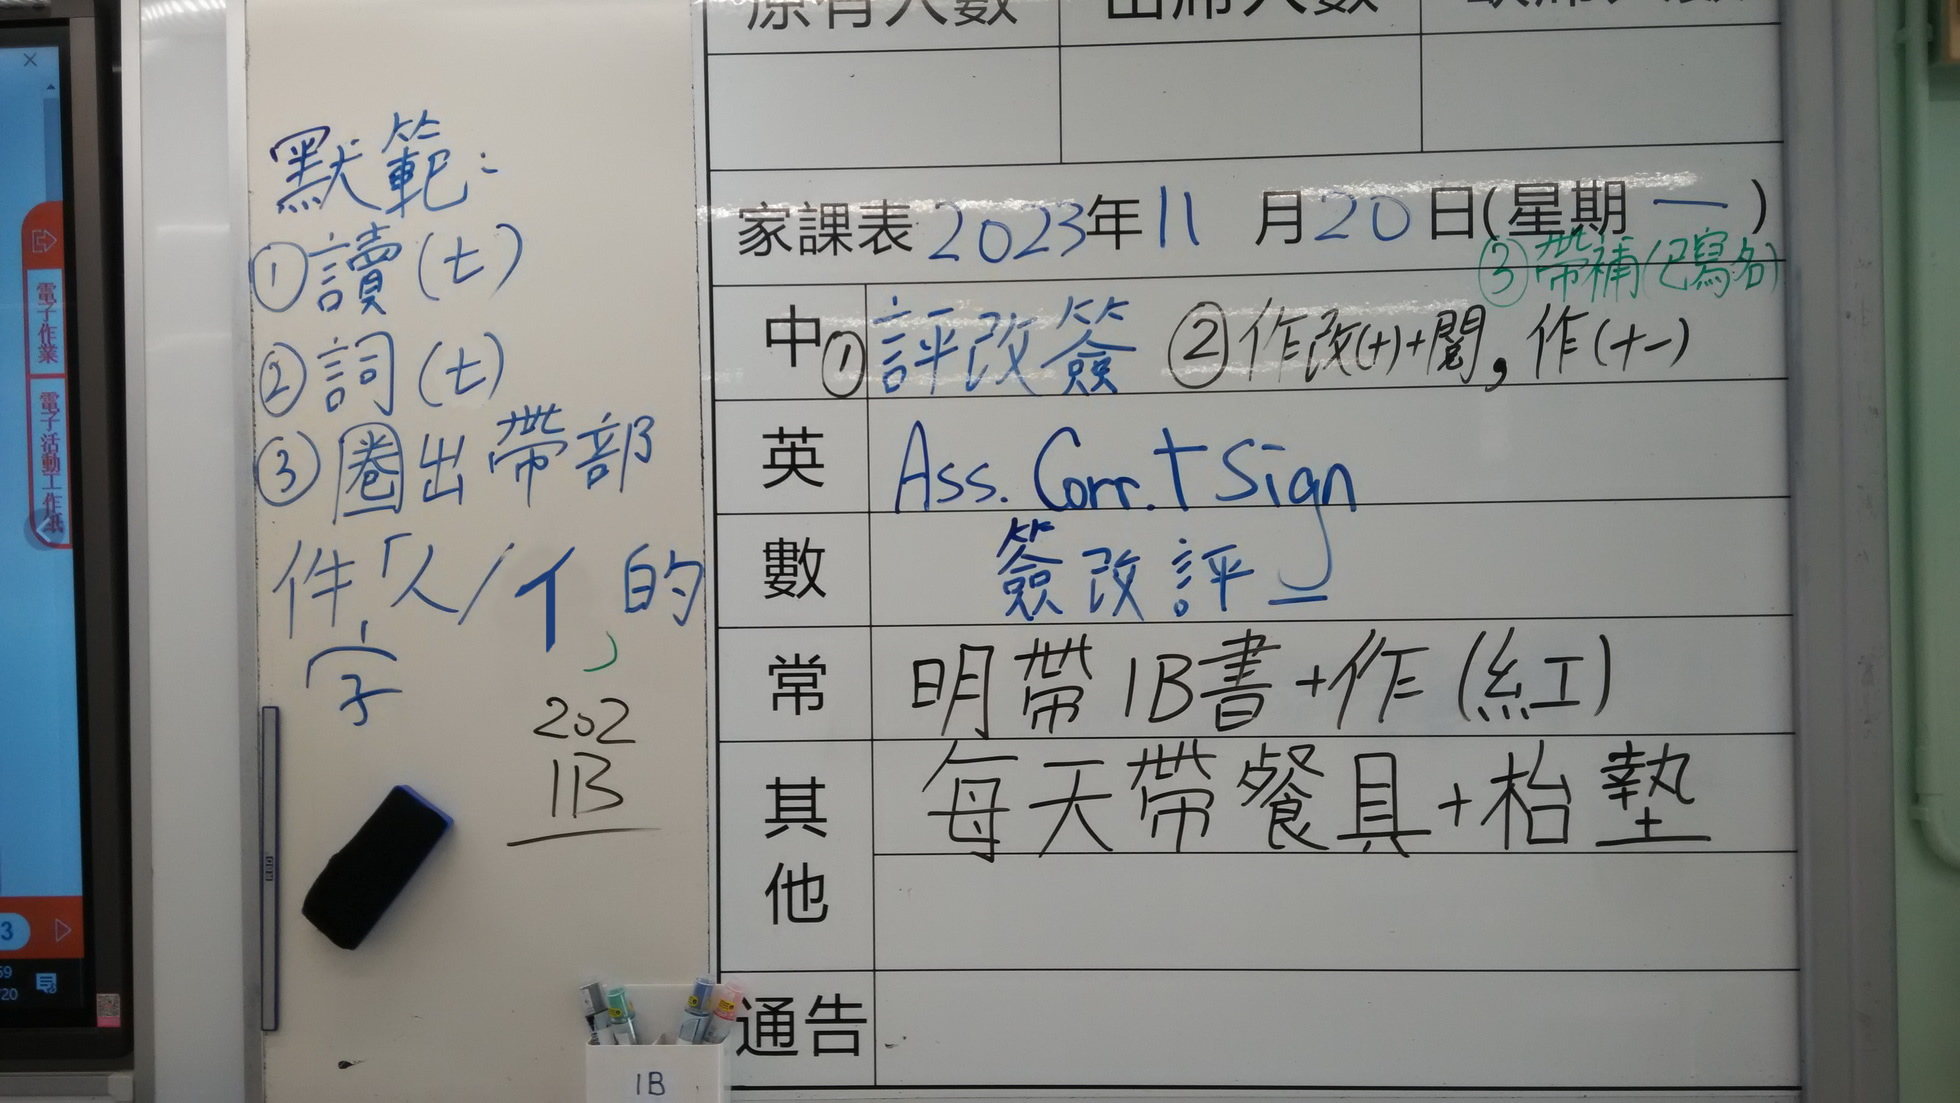 電子作業
電子活動工作紙
3
默範：
①讀(七)
②詞(七)
③圈出帶部
件「人/亻」的
字
202
1B
1B
原有人數 出席人數
家課表 2023年11月20日(星期一)
③帶補(已寫名)
中 ①評改簽 ②作改(十)+閱，作(十一)
英 Ass. Corr. + Sign
數 簽改評一
常 明帶1B書+作(紅)
其他 每天帶餐具+枱墊
通告